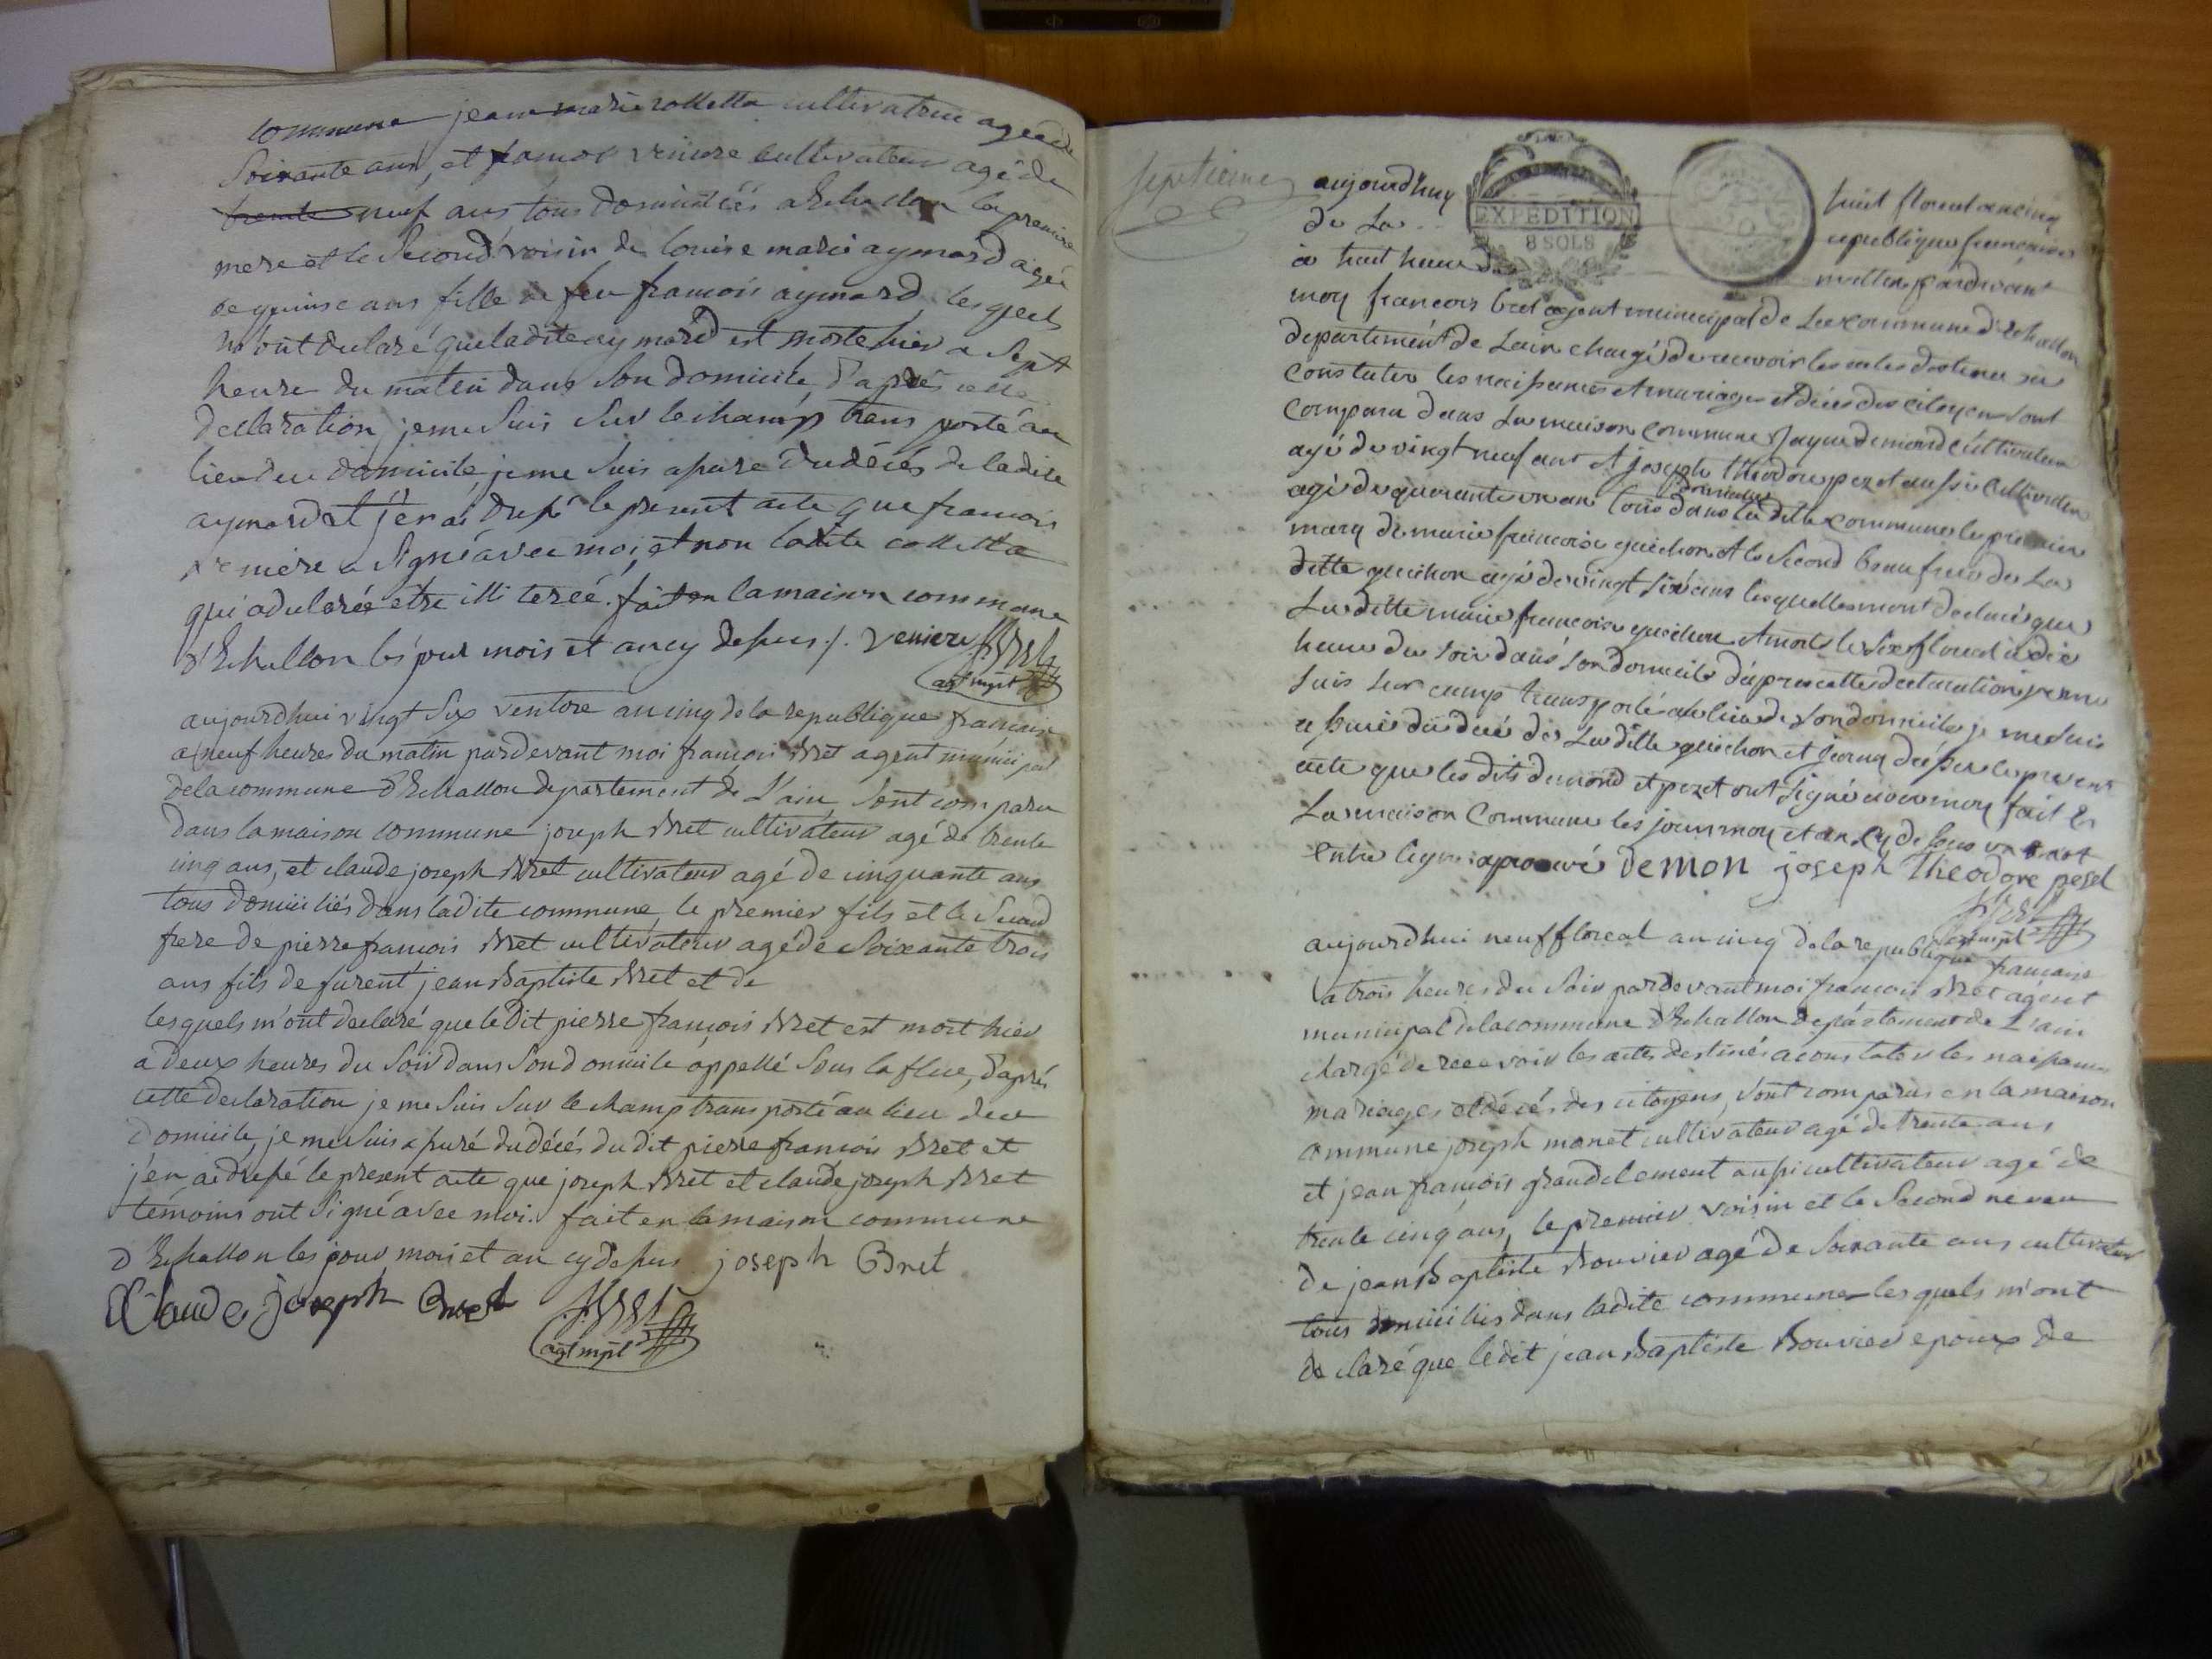 commune jeanne marie colletta cultivatrice agée de
Soixante ans, et francois veniere cultivateur agé de
trente neuf ans tous domiciliés a Echallon la premiere
mere et le Second voisin de louise marie aymard agée
de quinse ans fille de feu francois aymard lesquels
m'ont declaré que ladite aymard est morte hier a Sept
heure du matin dans Son domicile, d'aprés cette
declaration je me Suis Sur le champ trans porté au
lieu du domicile, je me Suis apuré du décés de ladite
aymard et j'en ai drefé le present acte que francois
veniere a Signé avec moi, et non ladite colletta
qui a declarée etre illi terée. fait en la maison commune
d'Echallon les jour mois et an cy defsus ./. veniere f. Bret
agt mpl
aujourdhui vingt Six ventose an cinq de la republique francaise
a neuf heures du matin pardevant moi francois Bret agent municipal
de la commune d'Echallon departement de L'ain Sont comparu
dans la maison commune joseph Bret cultivateur agé de trente
cinq ans, et claude joseph Bret cultivateur agé de cinquante ans
tous domiciliés dans ladite commune, le premier fils et le Second
frere de pierre francois Bret cultivateur agé de Soixante trois
ans fils de furent jean Baptiste Bret et de
lesquels m'ont declaré que le dit pierre françois Bret est mort hier
a deux heures du Soir dans Son domicile appellé Sous la flue, d'aprés
cette declaration je me Suis Sur le champ trans porté au lieu du
domicile, je me Suis apuré du décés du dit pierre francois Bret et
j'en ai drefé le present acte que joseph Bret et claude joseph Bret
témoins ont Signé avec moi. fait en la maison commune
d'Echallon les jour mois et an cy defsus joseph Bret
Claude joseph Bret f. Bret
agt mpl
septieme
aujourdhuy EXPEDITION 8 SOLS huit floreal an cinq
de La republique francaise
à huit heure du mattin pardevant
moy francois bret agent municipal de La commune d'Echallon
departement de Lain chargé de recevoir les actes destinez a
constater les naifsances et mariages et décés des citoyens sont
comparu dans La maison commune Jaque demond cultivateur
agé de vingt neuf ans et joseph theodore pezet aussi cultivateur
agé de quarante un an tous domicilies dans la ditte commune le premier
mary de marie francoise guichon et le Second beau frere de La
ditte guichon agé de vingt six ans lesquelles mont declaré que
La ditte marie francoise guichon et morte le six floreal a dix
heure du soir dans son domicile d'apres cette declaration je me
suis sur camp transporté au lieu de son domicile je me suis
apuré du décé de La ditte guichon et j'en ay drefsé le present
acte que les dits demond et pezet ont Signé avec moy fait en
La maison commune les jour moy et an cy desus un mot
entre ligne aprouvé Demon joseph theodore peset
f. Bret
agt mpl
aujourdhui neuf floreal an cinq de la republique francaise
a trois heures du Soir pardevant moi francois Bret agent
municipal de la commune d'Echallon departement de L'ain
chargé de recevoir les actes destinés a constater les naifsances
mariages et décés des citoyens, Sont comparus en la maison
commune joseph monet cultivateur agé de trente ans
et jean francois grandclement aufsi cultivateur agé de
trente cinq ans, le premier voisin et le Second neveu
de jean Baptiste Bouvier agé de Soixante ans cultivateur
tous domiciliés dans ladite commune lesquels m'ont
declaré que ledit jean Baptiste Bouvier epoux de